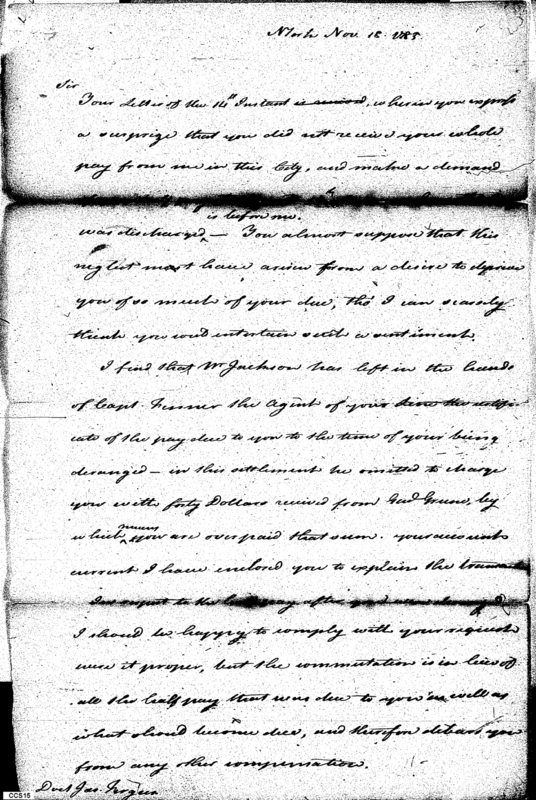 NYork Nov. 18. 1785.
Sir
Your Letter of the 14th Instant is received, wherein you express
a surprize that you did not receive your whole
pay from me in this City, and make a demand
is before me.
was discharged — You almost suppose that this
neglect must have arisen from a desire to deprive
you of so much of your due, tho' I can scarcely
think you would entertain such a sentiment.
I find that Mr Jackson has left in the hands
of Capt. Tenner the Agent of your line the certifi-
cate of the pay due to you to the time of your being
deranged — in this settlement he omitted to charge
you with forty Dollars received from Genl Greene, by
which means you are overpaid that sum. your account
current I have enclosed you to explain the
In respect to the half pay after you were deranged
I should be happy to comply with your request
were it proper, but the commutation is in lieu of
all the half pay that was due to you as well as
what should become due, and therefore debars you
from any other compensation.
Doct Jas.
CCS15